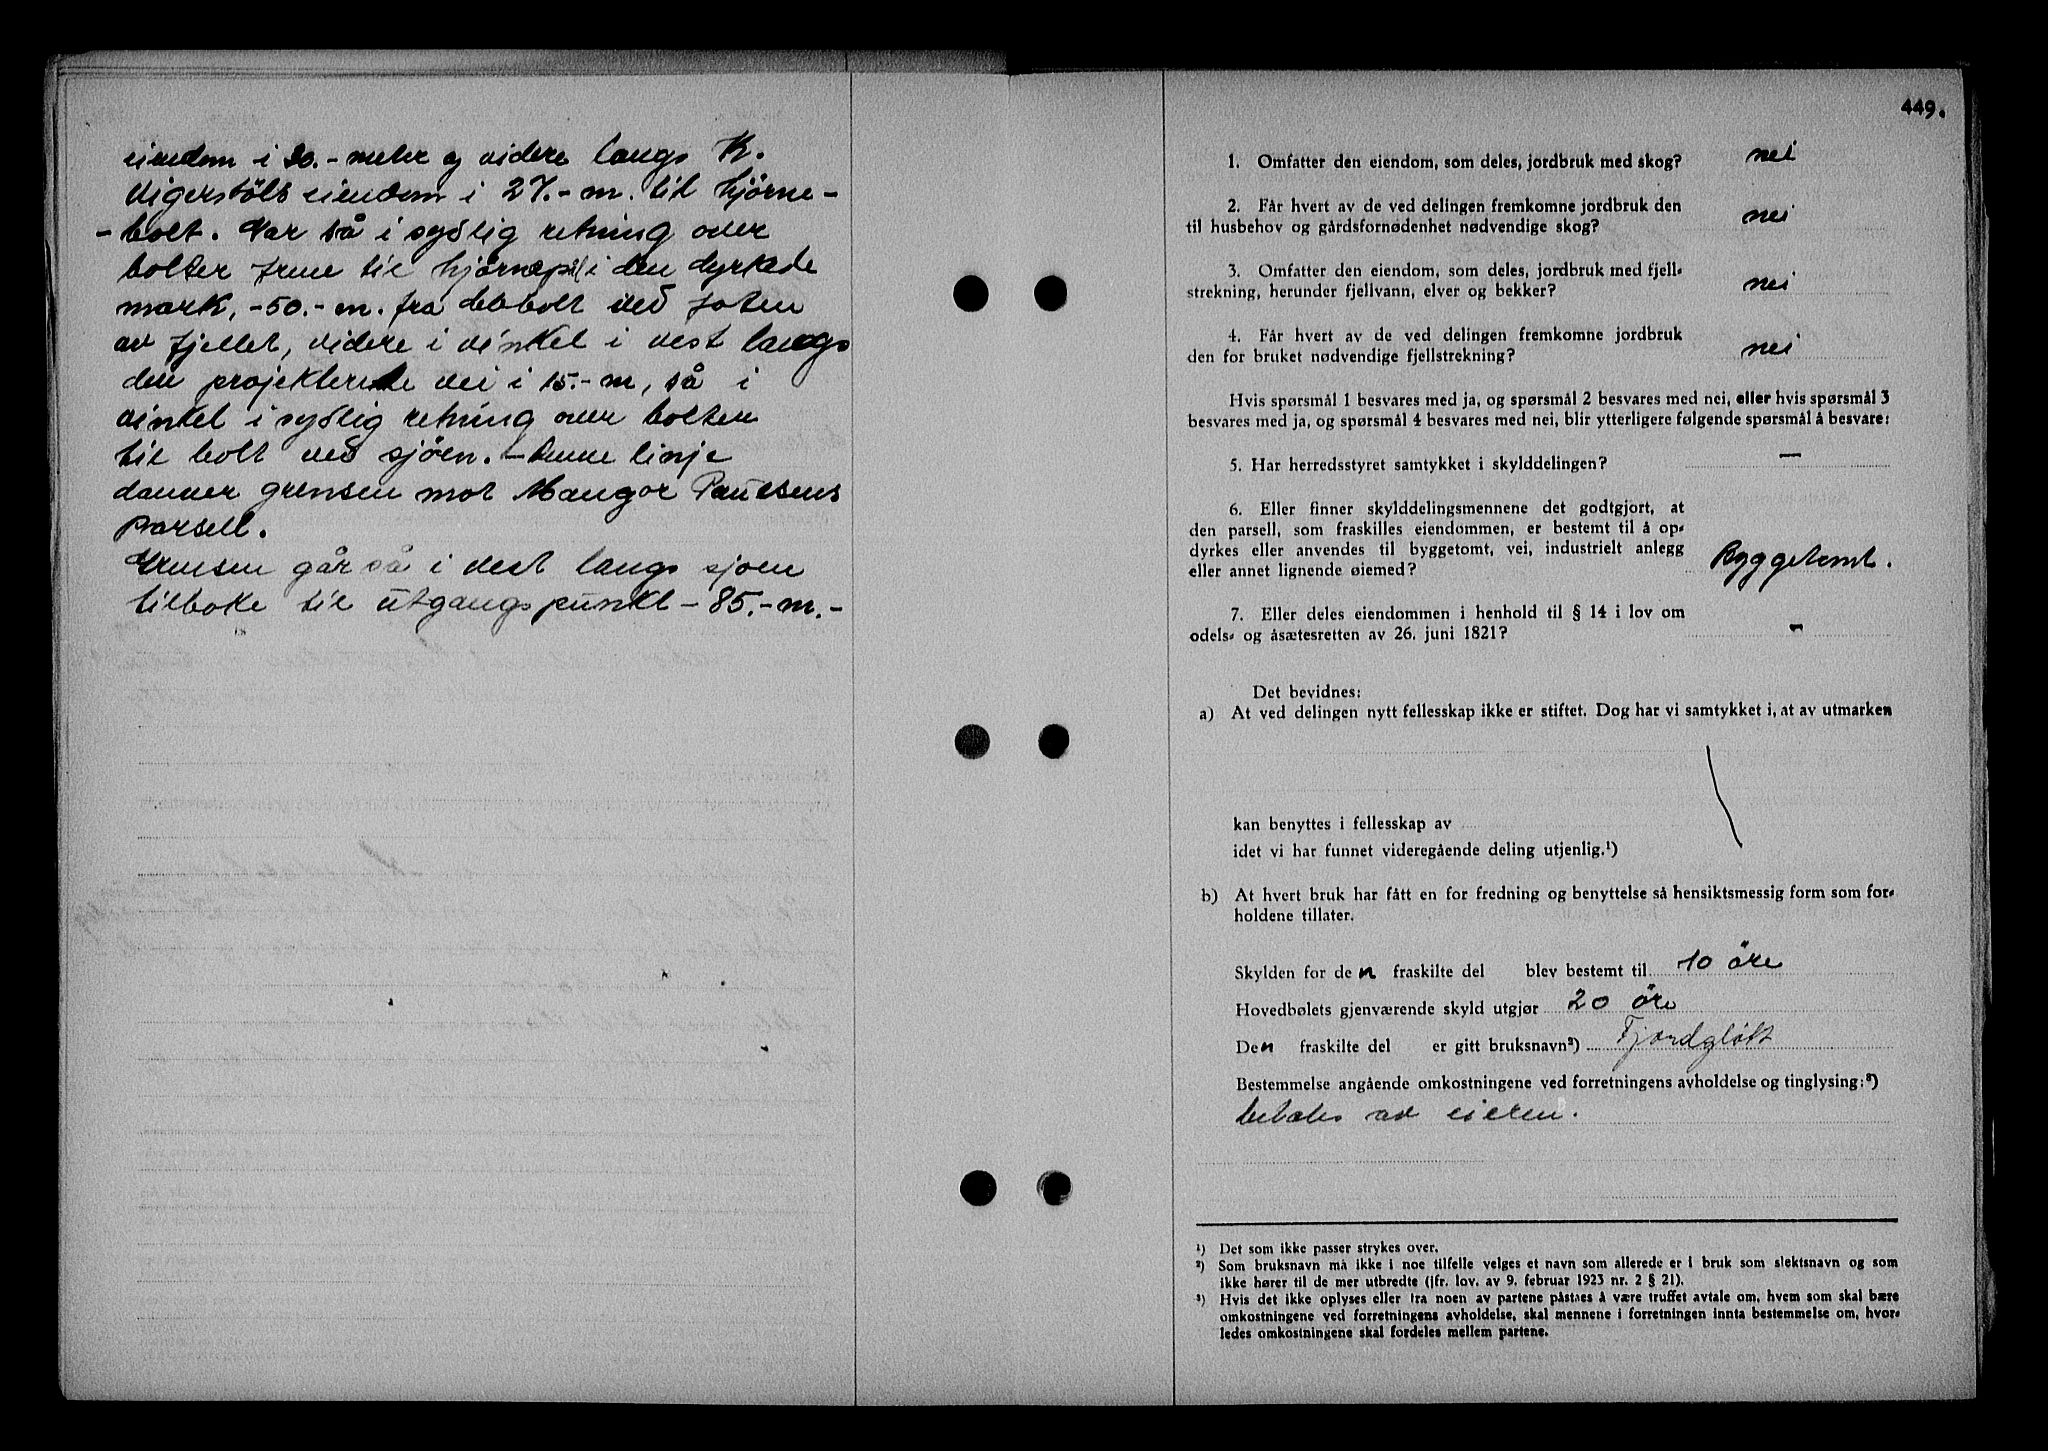 eiendom i 20.- meter og videre langs K.
Vigerstöls eiendom i 27.- m. til hjørne-
- bolt. Var så i sydlig retning over
bolter frem til hjørnepel i den dyrkede
mark, -50.- m. fra bolt ved foten
av fjellet, videre i vinkel i vest langs
den projekterede vei i 15.- m, så i
vinkel i sydlig retning over bolten
til bolt ved sjöen. - Denne linje
danner grensen mot Mangor Paulsens
parsell.
Grensen går så i vest langs sjøen
tilbake til utgangspunkt - 85.- m. -
449.
1. Omfatter den eiendom, som deles, jordbruk med skog? nei
2. Får hvert av de ved delingen fremkomne jordbruk den
til husbehov og gårdsfornødenhet nødvendige skog? nei
3. Omfatter den eiendom, som deles, jordbruk med fjell-
strekning, herunder fjellvann, elver og bekker? nei
4. Får hvert av de ved delingen fremkomne jordbruk
den for bruket nødvendige fjellstrekning? nei
Hvis spørsmål 1 besvares med ja, og spørsmål 2 besvares med nei, eller hvis spørsmål 3
besvares med ja, og spørsmål 4 besvares med nei, blir ytterligere følgende spørsmål å besvare:
5. Har herredsstyret samtykket i skylddelingen? —
6. Eller finner skylddelingsmennene det godtgjort, at
den parsell, som fraskilles eiendommen, er bestemt til å op-
dyrkes eller anvendes til byggetomt, vei, industrielt anlegg
eller annet lignende øiemed? Byggetomt.
7. Eller deles eiendommen i henhold til § 14 i lov om
odels- og åsætesretten av 26. juni 1821? -
Det bevidnes:
a) At ved delingen nytt fellesskap ikke er stiftet. Dog har vi samtykket i, at av utmarken
kan benyttes i fellesskap av
idet vi har funnet videregående deling utjenlig.¹)
b) At hvert bruk har fått en for fredning og benyttelse så hensiktsmessig form som for-
holdene tillater.
Skylden for den fraskilte del blev bestemt til 10 öre
Hovedbølets gjenværende skyld utgjør 20 öre
Den fraskilte del er gitt bruksnavn²) Fjordgløtt
Bestemmelse angående omkostningene ved forretningens avholdelse og tinglysing:³)
betales av eieren.
¹) Det som ikke passer strykes over.
²) Som bruksnavn må ikke i noe tilfelle velges et navn som allerede er i bruk som slektsnavn og som
ikke hører til de mer utbredte (jfr. lov. av 9. februar 1923 nr. 2 § 21).
³) Hvis det ikke oplyses eller fra noen av partene påstaes å være truffet avtale om, hvem som skal bære
omkostningene ved forretningens avholdelse, skal mennene i forretningen innta bestemmelse om, hvor-
ledes omkostningene skal fordeles mellem partene.